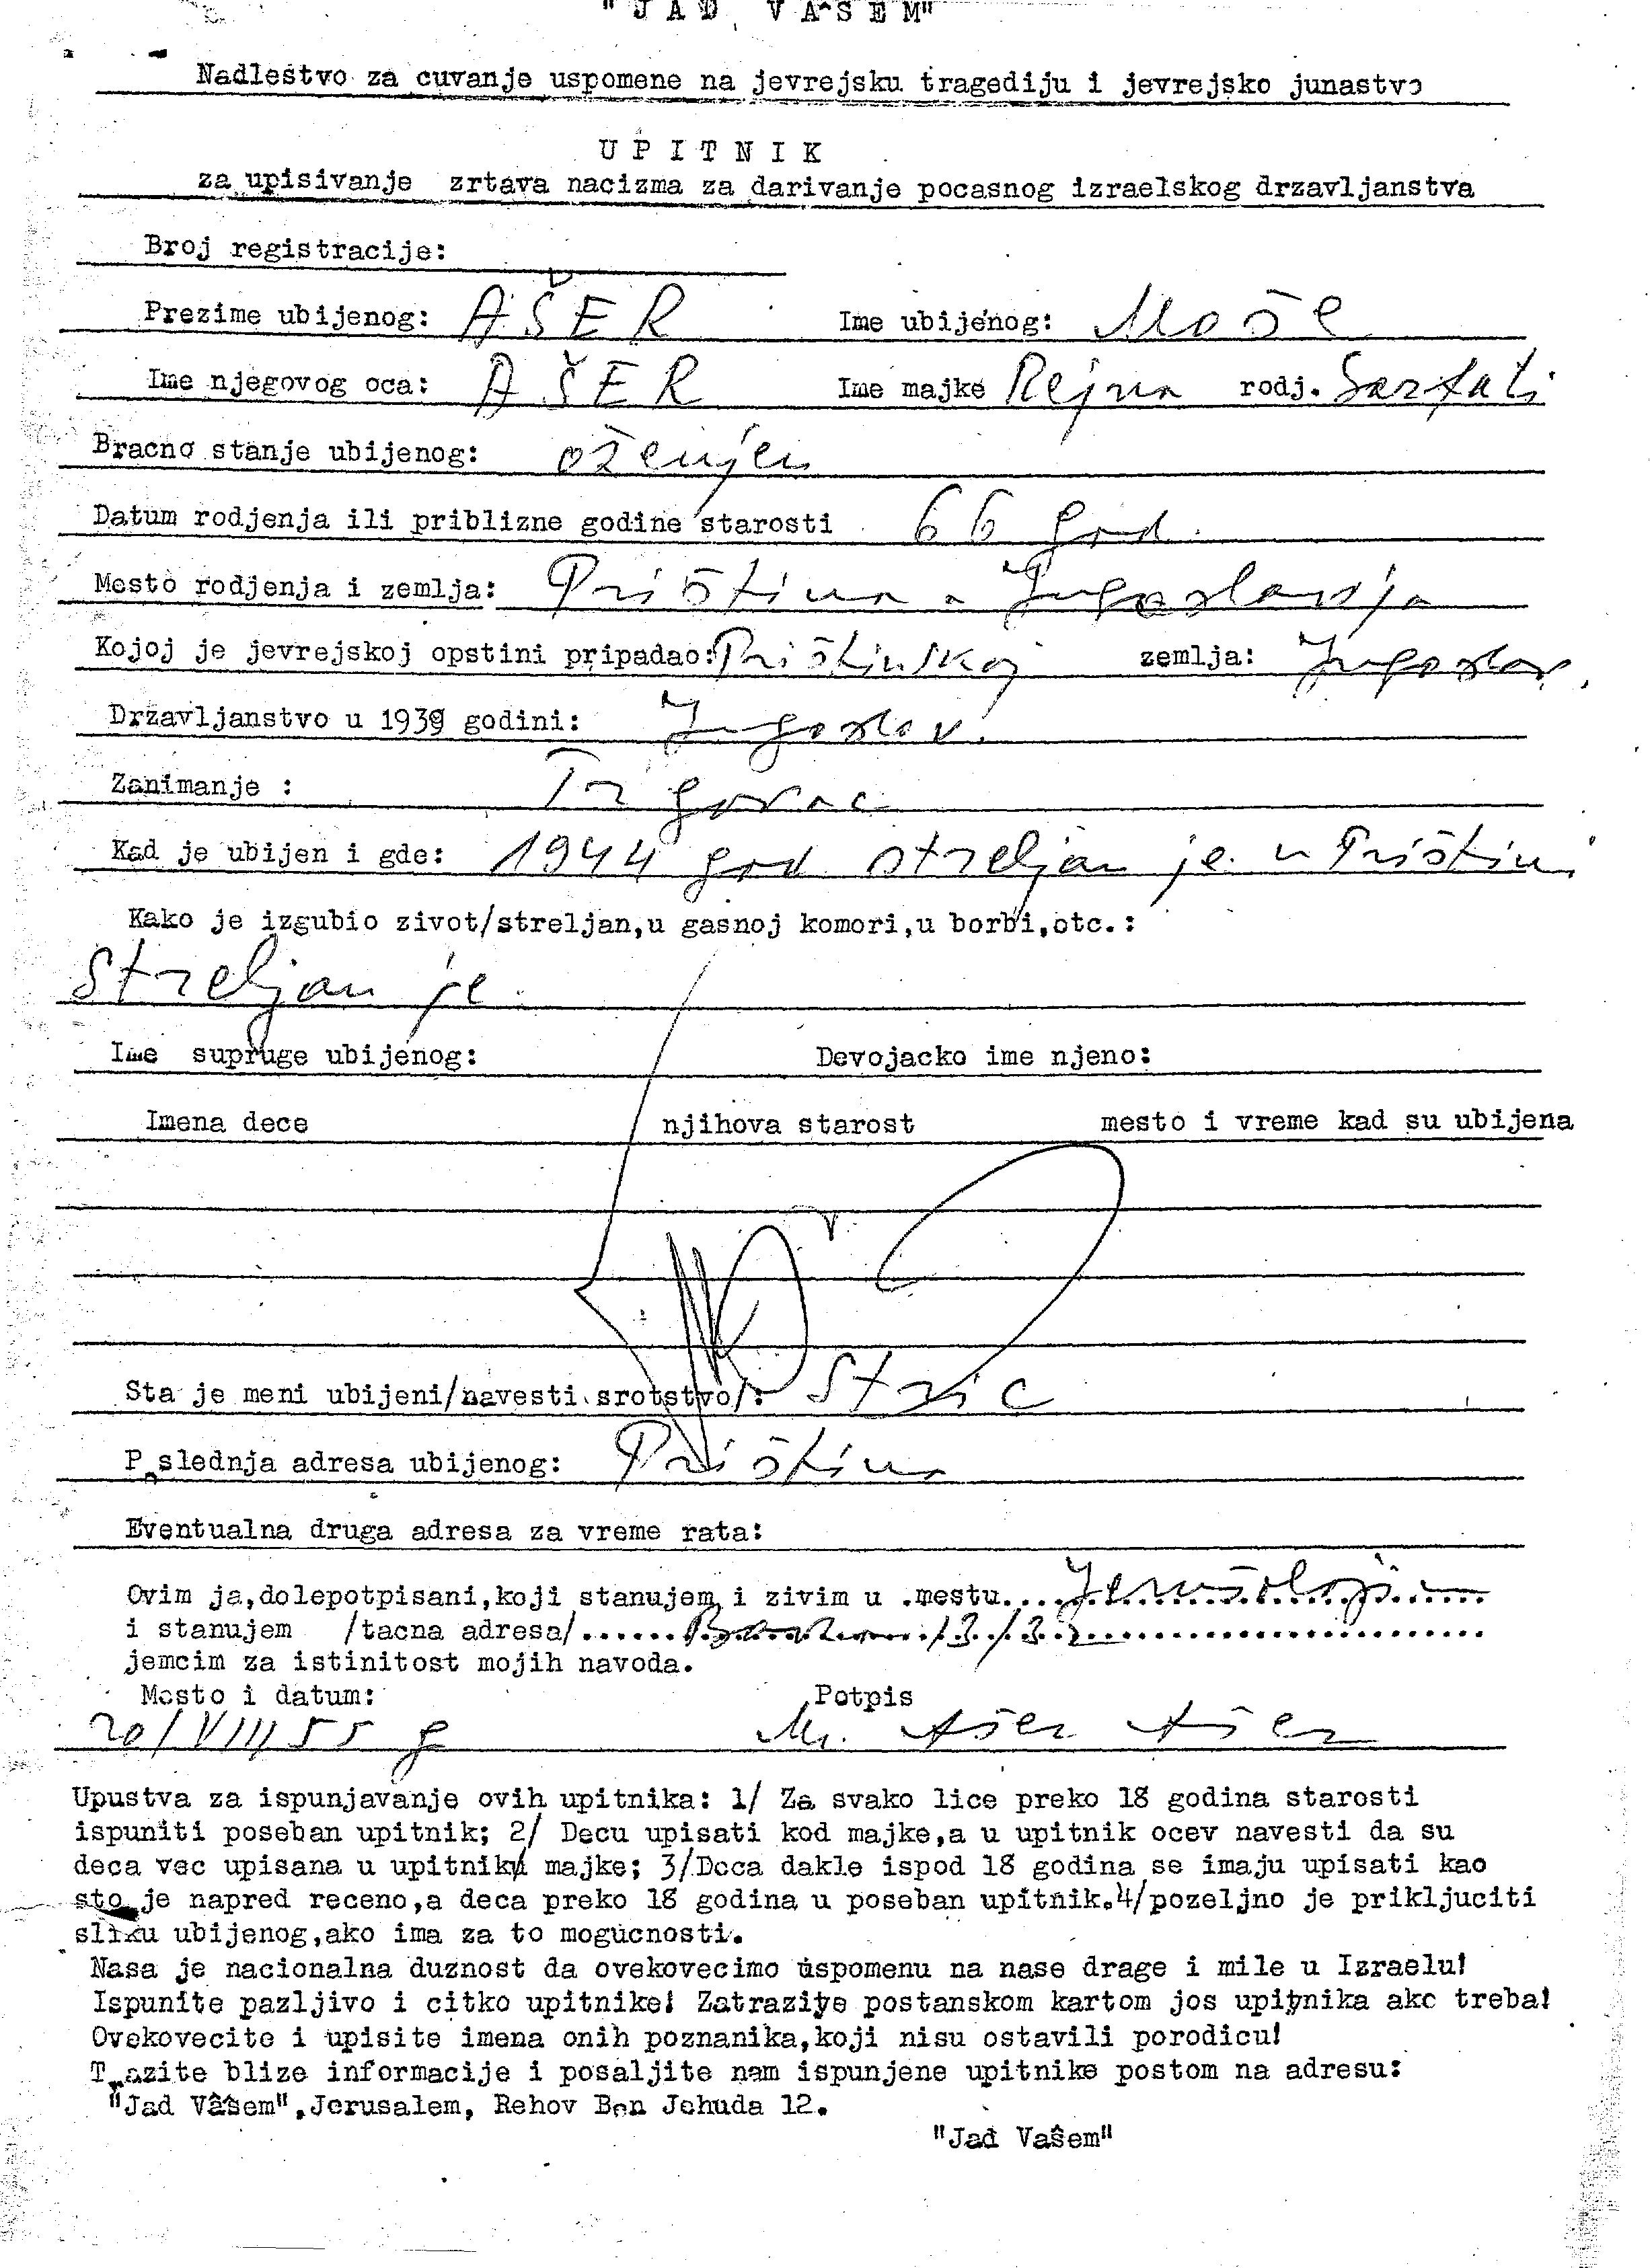 "JAD VAŠEM"
Nadlestvo za cuvanje uspomene na jevrejsku tragediju i jevrejsko junastvo
UPITNIK
za upisivanje zrtava nacizma za darivanje pocasnog izraelskog drzavljanstva
Broj registracije:
Prezime ubijenog: AŠER Ime ubijenog: Moše
Ime njegovog oca: AŠER Ime majke Rejna rodj. Sarfati
Bracno stanje ubijenog: oženjen
Datum rodjenja ili priblizne godine starosti 66 god.
Mesto rodjenja i zemlja: Priština - Jugoslavija
Kojoj je jevrejskoj opstini pripadao: Prištinskoj zemlja: Jugoslav.
Drzavljanstvo u 1939 godini: Jugoslov.
Zanimanje : Trgovac
Kad je ubijen i gde: 1944 god streljan je u Prištin.
Kako je izgubio zivot/streljan,u gasnoj komori,u borbi,otc.:
Streljan je.
Ime supruge ubijenog: Devojacko ime njeno:
Imena dece njihova starost mesto i vreme kad su ubijena
Sta je meni ubijeni/navesti srotstvo/: Stric
P slednja adresa ubijenog: Priština
Eventualna druga adresa za vreme rata:
Ovim ja,dolepotpisani,koji stanujem i zivim u .mestu....Jerušolajim
i stanujem /tacna adresa/...... /3/32
jemcim za istinitost mojih navoda.
Mesto i datum: Potpis
20/VIII 55 g Mr. Ašer Ašer
Upustva za ispunjavanje ovih upitnika: 1/ Za svako lice preko 18 godina starosti
ispuniti poseban upitnik; 2/ Decu upisati kod majke,a u upitnik ocev navesti da su
deca vec upisana u upitniku majke; 3/.Deca dakle ispod 18 godina se imaju upisati kao
sto je napred receno,a deca preko 18 godina u poseban upitnik.4/pozeljno je prikljuciti
sliku ubijenog,ako ima za to mogucnosti.
Nasa je nacionalna duznost da ovekovecimo uspomenu na nase drage i mile u Izraelu!
Ispunite pazljivo i citko upitnike! Zatrazite postanskom kartom jos upitnika ako treba!
Ovekovecite i upisite imena onih poznanika,koji nisu ostavili porodicu!
T azite blize informacije i posaljite nam ispunjene upitnike postom na adresu:
"Jad Vašem",Jerusalem, Rehov Ben Jehuda 12.
"Jad Vašem"